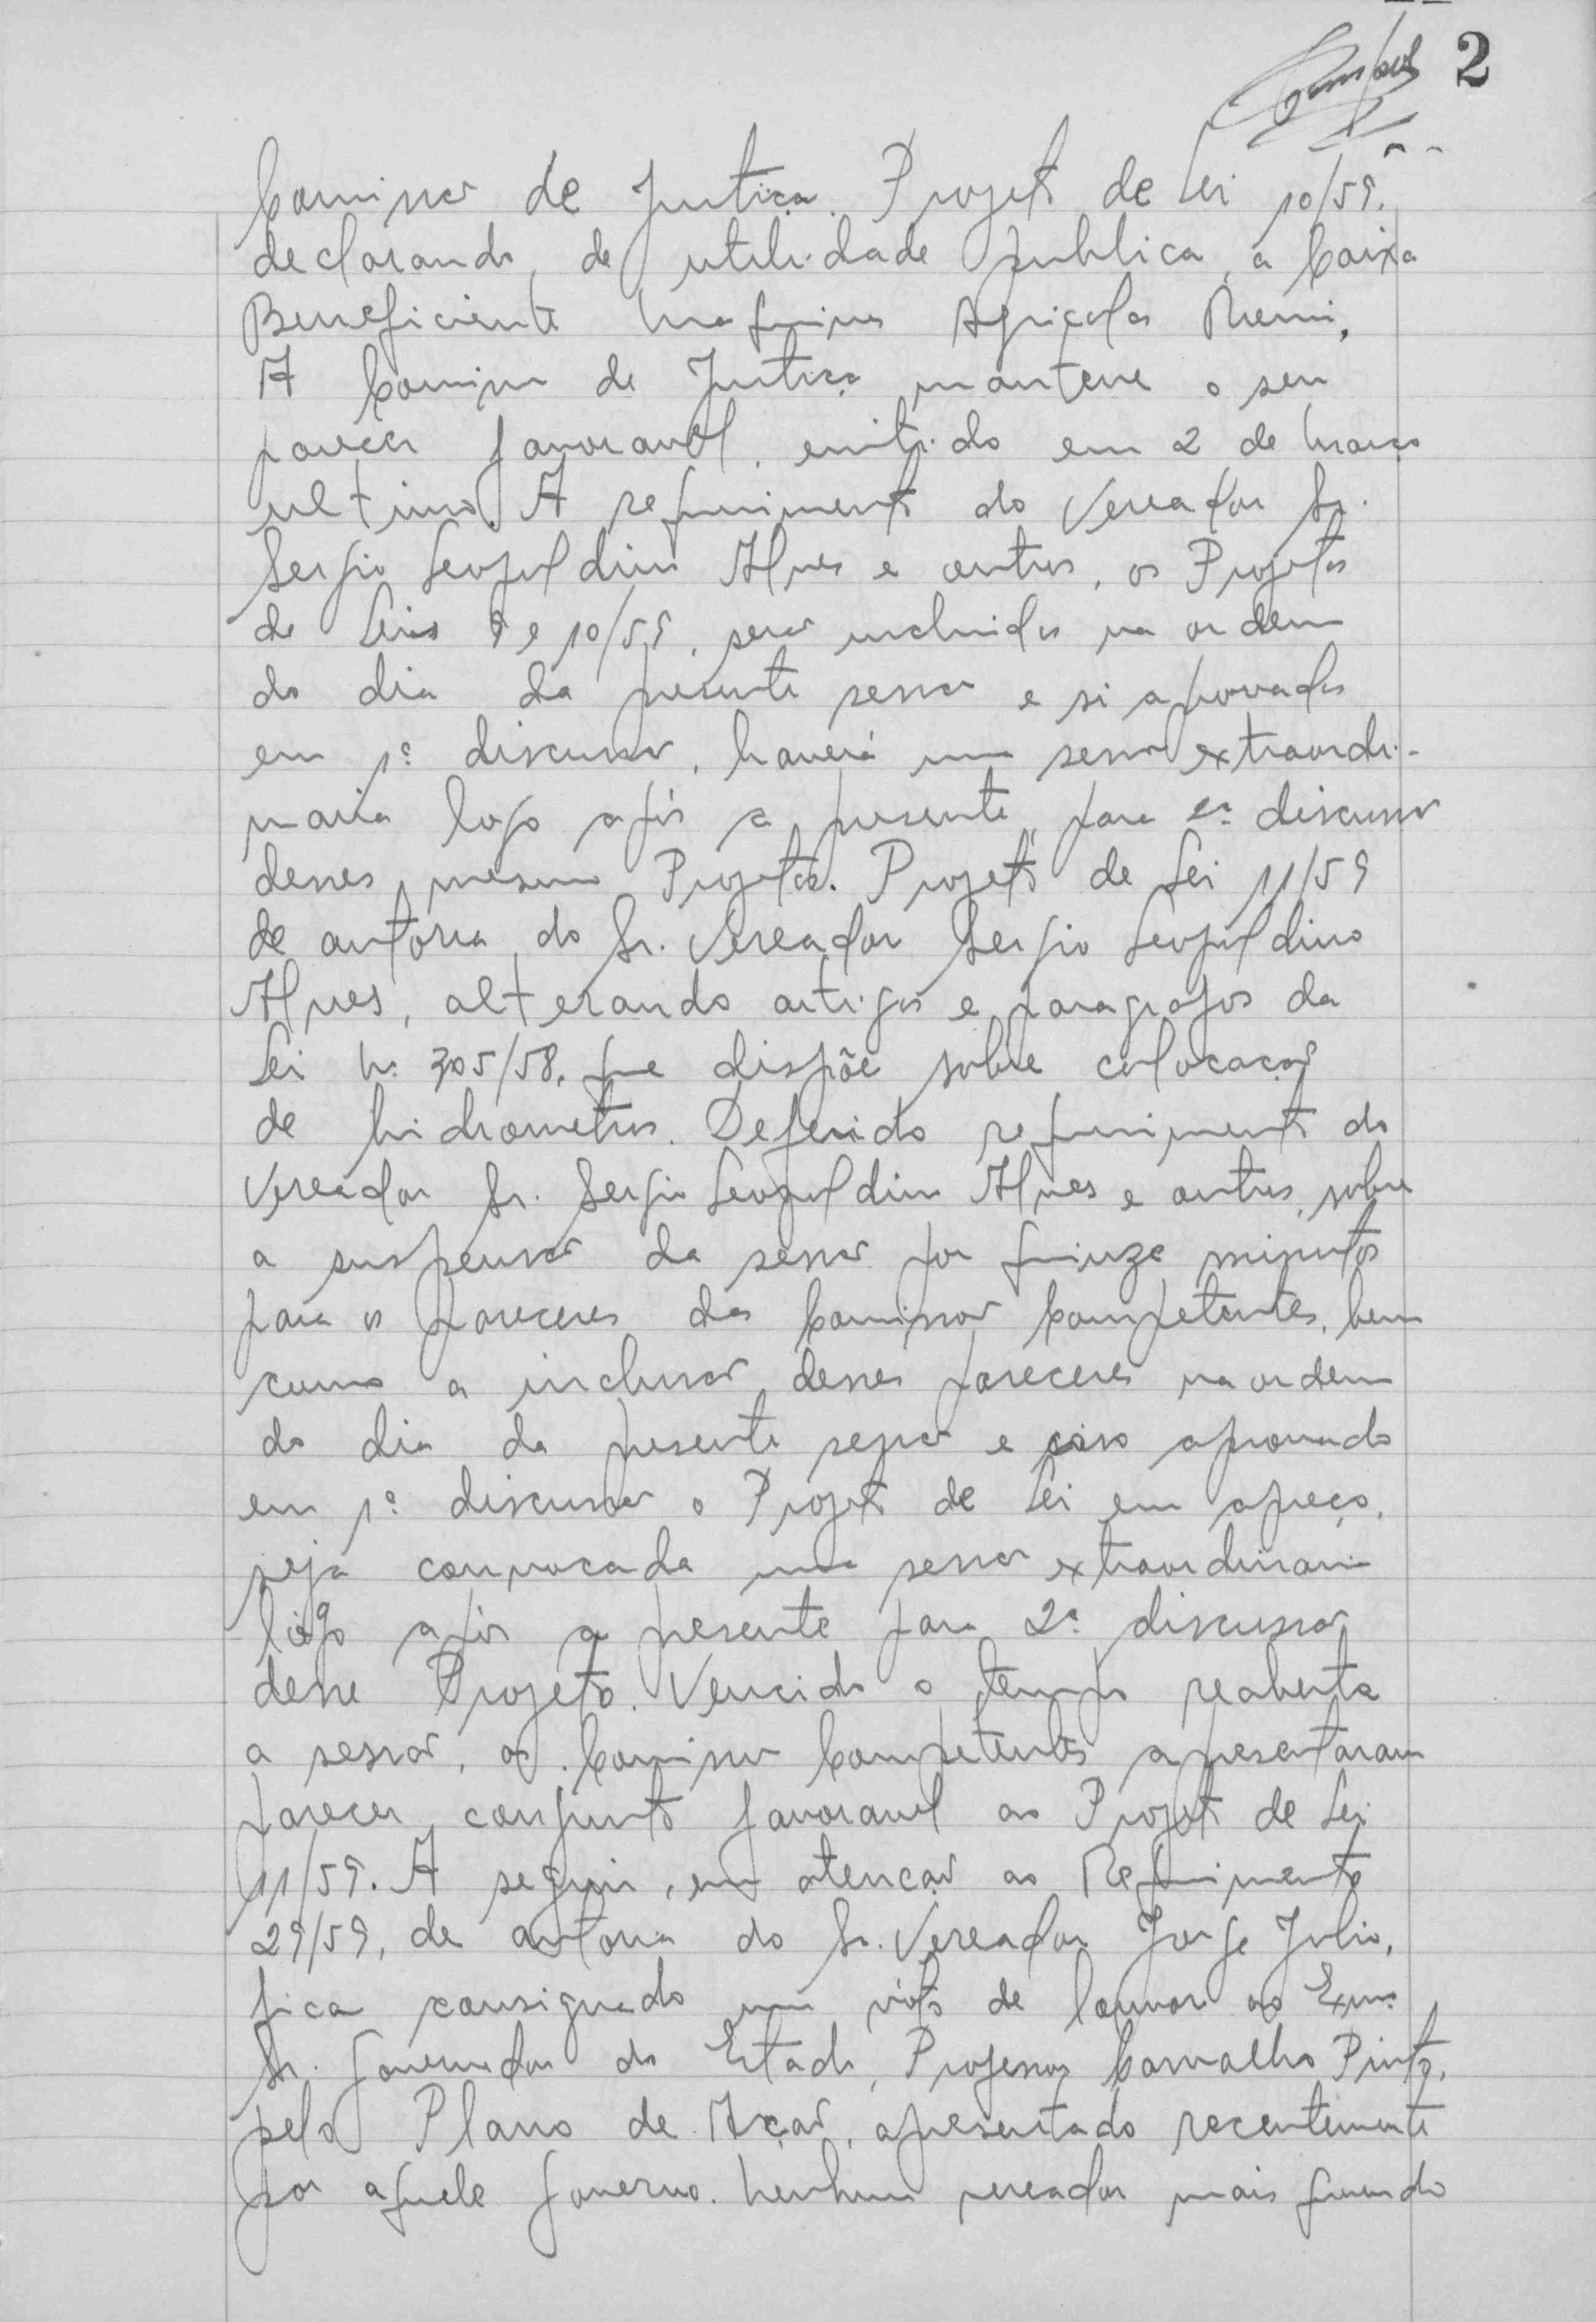 2
Comissão de Justiça. Projeto de Lei 10/59.
declarando, de utilidade publica, a Caixa
Beneficiente Maquinas Agricolas Nremi.
A Comissão de Justiça manteve o seu
parecer favoravel, emitido em 2 de Março
ultimo. A requerimento do Vereador Sr.
Sergio Leopoldino Alves e outros, os Projetos
de Leis 9 e 10/59, serão incluidos na ordem
do dia da presente sessão e si aprovados
em 1ª discussão, haverá uma sessão extraordi-
naria logo após a presente, para 2ª discussão
desses mesmos Projetos. Projeto de Lei 11/59
de autoria do Sr. Vereador Sergio Leopoldino
Alves, alterando artigos e paragrafos da
Lei nº 305/58, que dispõe sobre colocação
de hidrometros. Deferido requerimento do
Vereador Sr. Sergio Leopoldino Alves e outros, sobre
a suspensão da sessão por quinze minutos
para os pareceres das Comissões Competentes, bem
como a inclusão desses pareceres na ordem
do dia da presente sessão e caso aprovado
em 1ª discussão o Projeto de Lei em apreço,
seja convocada uma sessão extraordinaria
logo após a presente para 2ª discussão
desse Projeto. Vencido o tempo reaberta
a sessão, as Comissões Competentes apresentaram
parecer conjunto favoravel ao Projeto de Lei
11/59. A seguir, em atenção ao Requerimento
29/59, de autoria do Sr. Vereador Jorge Julio,
fica consignado um vóto de louvor ao Exmo
Sr. Governador do Estado, Professor Carvalho Pinto,
pelo Plano de Ação, apresentado recentemente
por aquele governo. Nenhum vereador mais querendo